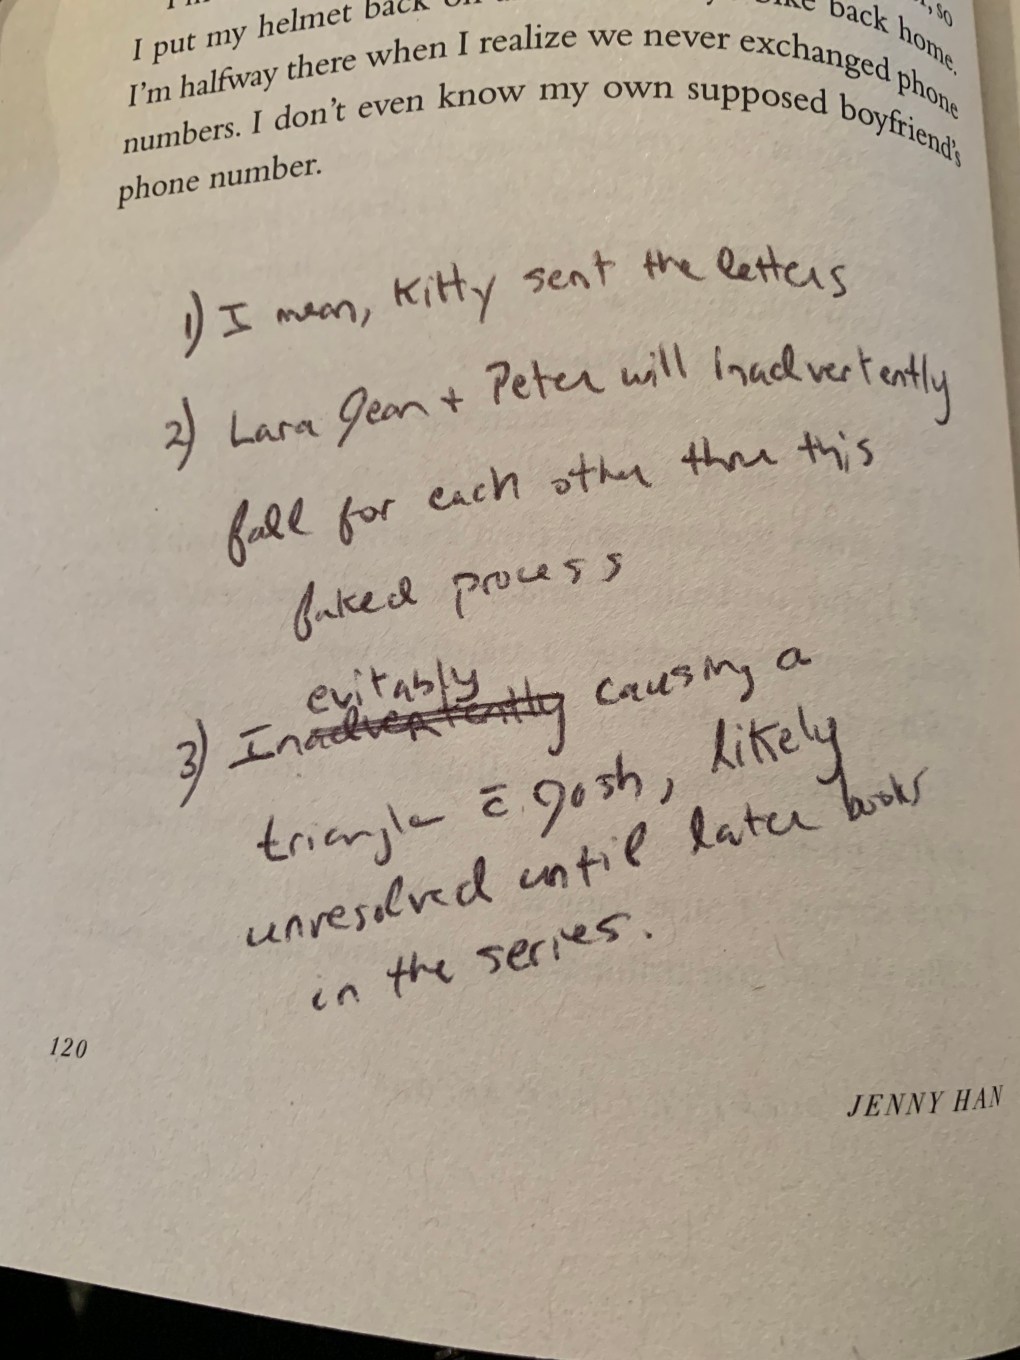 , so
I put my helmet back on back home.
I'm halfway there when I realize we never exchanged phone
numbers. I don't even know my own supposed boyfriend's
phone number.
1) I mean, Kitty sent the letters
2) Lara Jean + Peter will inadvertently
fall for each other thru this
faked process
evitably
3) Inadvertently causing a
triangle c̄ Josh, likely
unresolved until later books
in the series.
120
JENNY HAN